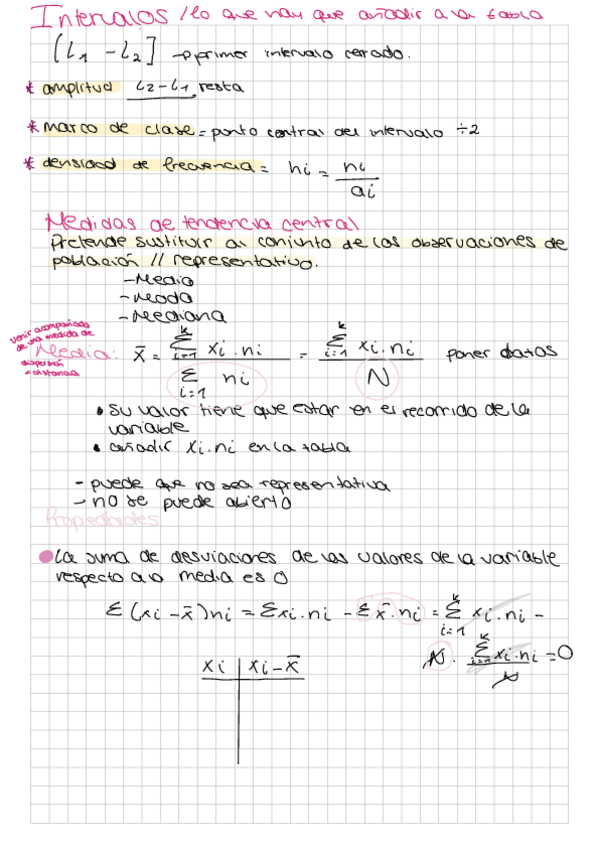 Intervalos / lo que hay que añadir a la tabla
[L₁ - L₂] → primer intervalo cerrado.
* amplitud L₂-L₁ resta
* marco de clase = punto central del intervalo ÷2
* densidad de frecuencia = hi = ni / ai
Medidas de tendencia central
Pretende sustituir al conjunto de las observaciones de
población // representativo.
- Media
- Moda
- Mediana
venir acompañada
de una medida de
dispersión
= distancia
Media: x̄ = Σ i=1 k xi.ni / Σ i=1 ni = Σ i=1 k xi.ni / N poner datos
• Su valor tiene que estar en el recorrido de la
variable
• añadir xi.ni en la tabla
- puede que no sea representativa
- no se puede abierto
Propiedades
● La suma de desviaciones de las valores de la variable
respecto a la media es 0
Σ (xi - x̄)ni = Σxi.ni - Σ x̄.ni = Σ i=1 k xi.ni -
N. Σ i=1 k xi.ni / N = 0
xi | xi - x̄